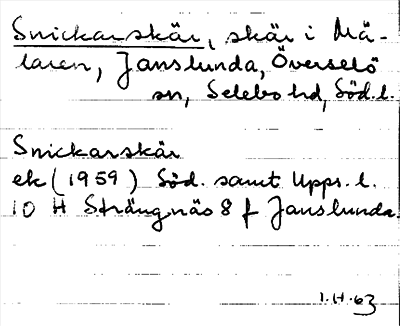 Snickarskär, skär i Mä-
laren, Janslunda, Överselö
sn, Selebo hd, Söd.l.
Snickarskär
ek (1959) Söd. samt Upps. l.
10 H Strängnäs 8 f Janslunda.
I.H.63